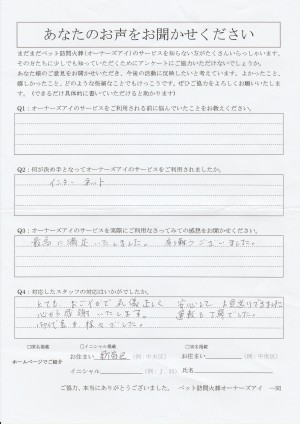 あなたのお声をお聞かせください
まだまだペット訪問火葬(オーナーズアイ)のサービスを知らない方がたくさんいらっしゃいます。
その方たちに少しでも知っていただくためにアンケートにご協力いただけないでしょうか。
あなた様のご意見をお聞かせいただき、今後の活動に反映したいと考えています。よかったこと、
嬉しかったこと、どのような些細なことでもけっこうです。ぜひご協力をよろしくお願いいたしま
す。(できるだけ具体的に書いていただけると助かります)
Q1:オーナーズアイのサービスをご利用される前に悩んでいたことをお教えください。
Q2:何が決め手となってオーナーズアイのサービスをご利用されましたか。
インターネット
Q3:オーナーズアイのサービスを実際にご利用なさってみての感想をお聞かせください。
最高に満足いたしました。有り難うございました。
Q4:対応したスタッフの対応はいかがでしたか。
とても おごそかで 礼儀正しく 安心して お見送りできました
心から感謝いたします。 運転も丁寧でした。
□匿名掲載 □イニシャル掲載 □実名掲載
お住まい (例:中央区) お住まい (例:中央区)
ホームページでご紹介
イニシャル (例:J.S) 氏名
ご協力、本当にありがとうございました。 ペット訪問火葬オーナーズアイ 一同